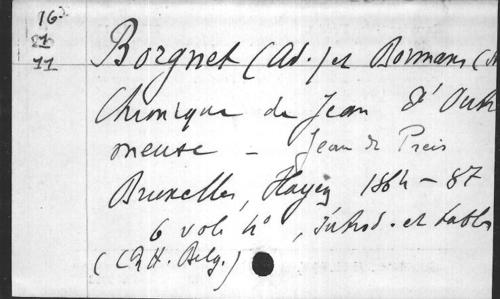 16
21
11
Borgnet (Ad.) et Bormans (
Chronique de Jean d'Outre
meuse - Jean de Preis
Bruxelles, Hayez 1864-87
6 vol. 4°, introd. et tables
(CRH. Belg.)